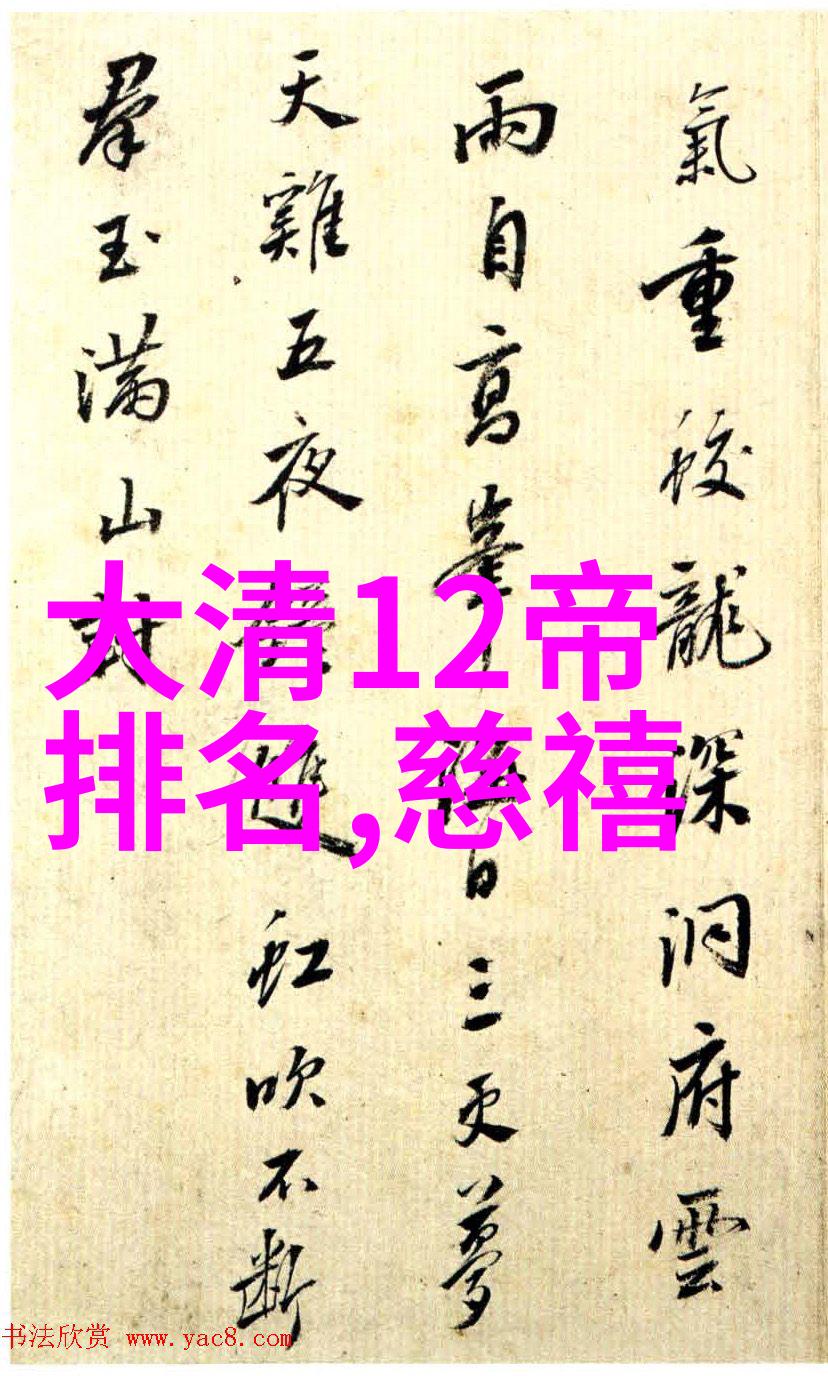 氣重蛟龍深洞府雲
雨自高峯日三更夢
天雞五夜虹吹不斷
羣玉滿山封
大清12帝
排名,慈禧
书法欣赏 www.yac8.com